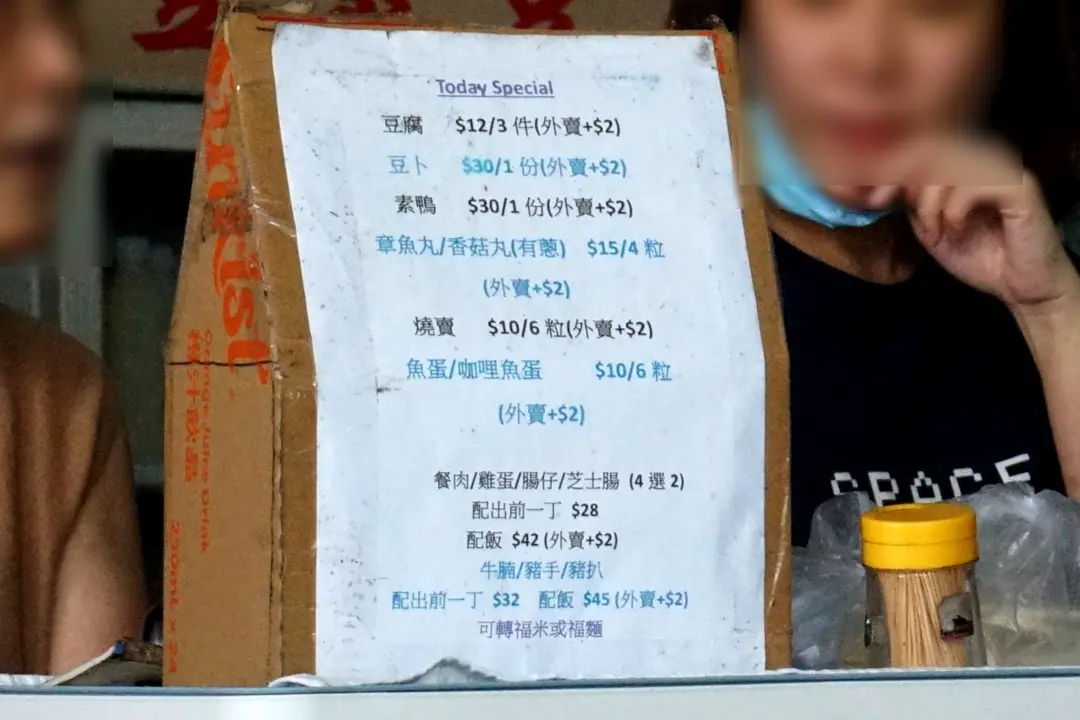 Today Special
豆腐 $12/3 件(外賣+$2)
豆卜 $30/1 份(外賣+$2)
素鴨 $30/1 份(外賣+$2)
章魚丸/香菇丸(有蔥) $15/4 粒
(外賣+$2)
燒賣 $10/6 粒(外賣+$2)
魚蛋/咖哩魚蛋 $10/6 粒
(外賣+$2)
餐肉/雞蛋/腸仔/芝士腸 (4 選 2)
配出前一丁 $28
配飯 $42 (外賣+$2)
牛腩/豬手/豬扒
配出前一丁 $32 配飯 $45 (外賣+$2)
可轉福米或福麵
Orange Juice Drink
橙汁飲品
250ml x 24
SPACE